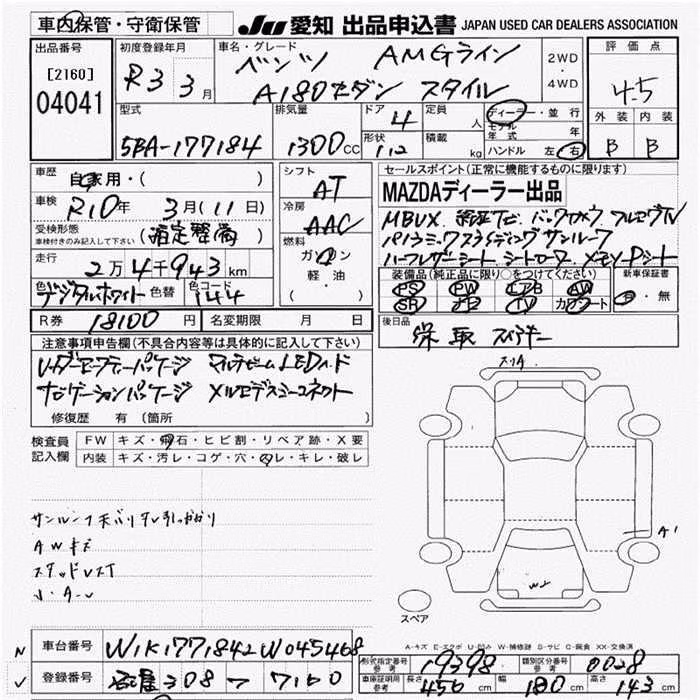 車内保管・守衛保管 JU 愛知 出品申込書 JAPAN USED CAR DEALERS ASSOCIATION
出品番号 初度登録年月 車名・グレード 評価点
[2160] R3 3月 ベンツ AMGライン 2WD・4WD
04041 A180セダン スタイル 4.5
型式 排気量 ドア 4 定員 人 ディーラー・並行 外装 内装
モデル年式 年
5BA-177184 1300cc 形状 積載 kg ハンドル 左・右 B B
車歴 自家用・( ) シフト AT セールスポイント(正常に機能するものに限ります)
車検 R10年 3月(11日) 冷房 AAC MAZDAディーラー出品
受検形態 車検付きのみ記入して下さい (指定整備) MBUX バックカメラ フルセグTV
走行 2万4千943km 燃料 ガソリン・軽油( ) パノラミックスライディングサンルーフ
ハーフレザーシート シートヒーター メモリーPシート
色 デジタルホワイト 色替 色コード 144 装備品(純正品に限り○をつけてください) 新車保証書
PS PW エアB AW 有・無
SR ナビ TV カワシート
R券 18100円 名変期限 月 日 後日品
注意事項申告欄(不具合箇所等は具体的に記入して下さい) 保 取 スペアキー
レーダーセーフティーパッケージ マルチビームLEDヘッド
ナビゲーションパッケージ メルセデスミーコネクト
修復歴 有(箇所
スリA
検査員記入欄 FW キズ・飛石・ヒビ割・リペア跡・X要
内装 キズ・汚レ・コゲ・穴・スレ・キレ・破レ
サンルーフ天バリ 引っかかり
AWキズ
A'
W2
スペア
A-キズ E-エクボ U-凹み W-補修跡 S-サビ C-腐食 XX-交換済
車台番号 W1K1771842W045468 形式指定番号 参考 19398 類別区分番号 参考 0028
登録番号 名古屋 308 7160 車庫証明用 参考 長さ 456cm 幅 180cm 高さ 143cm